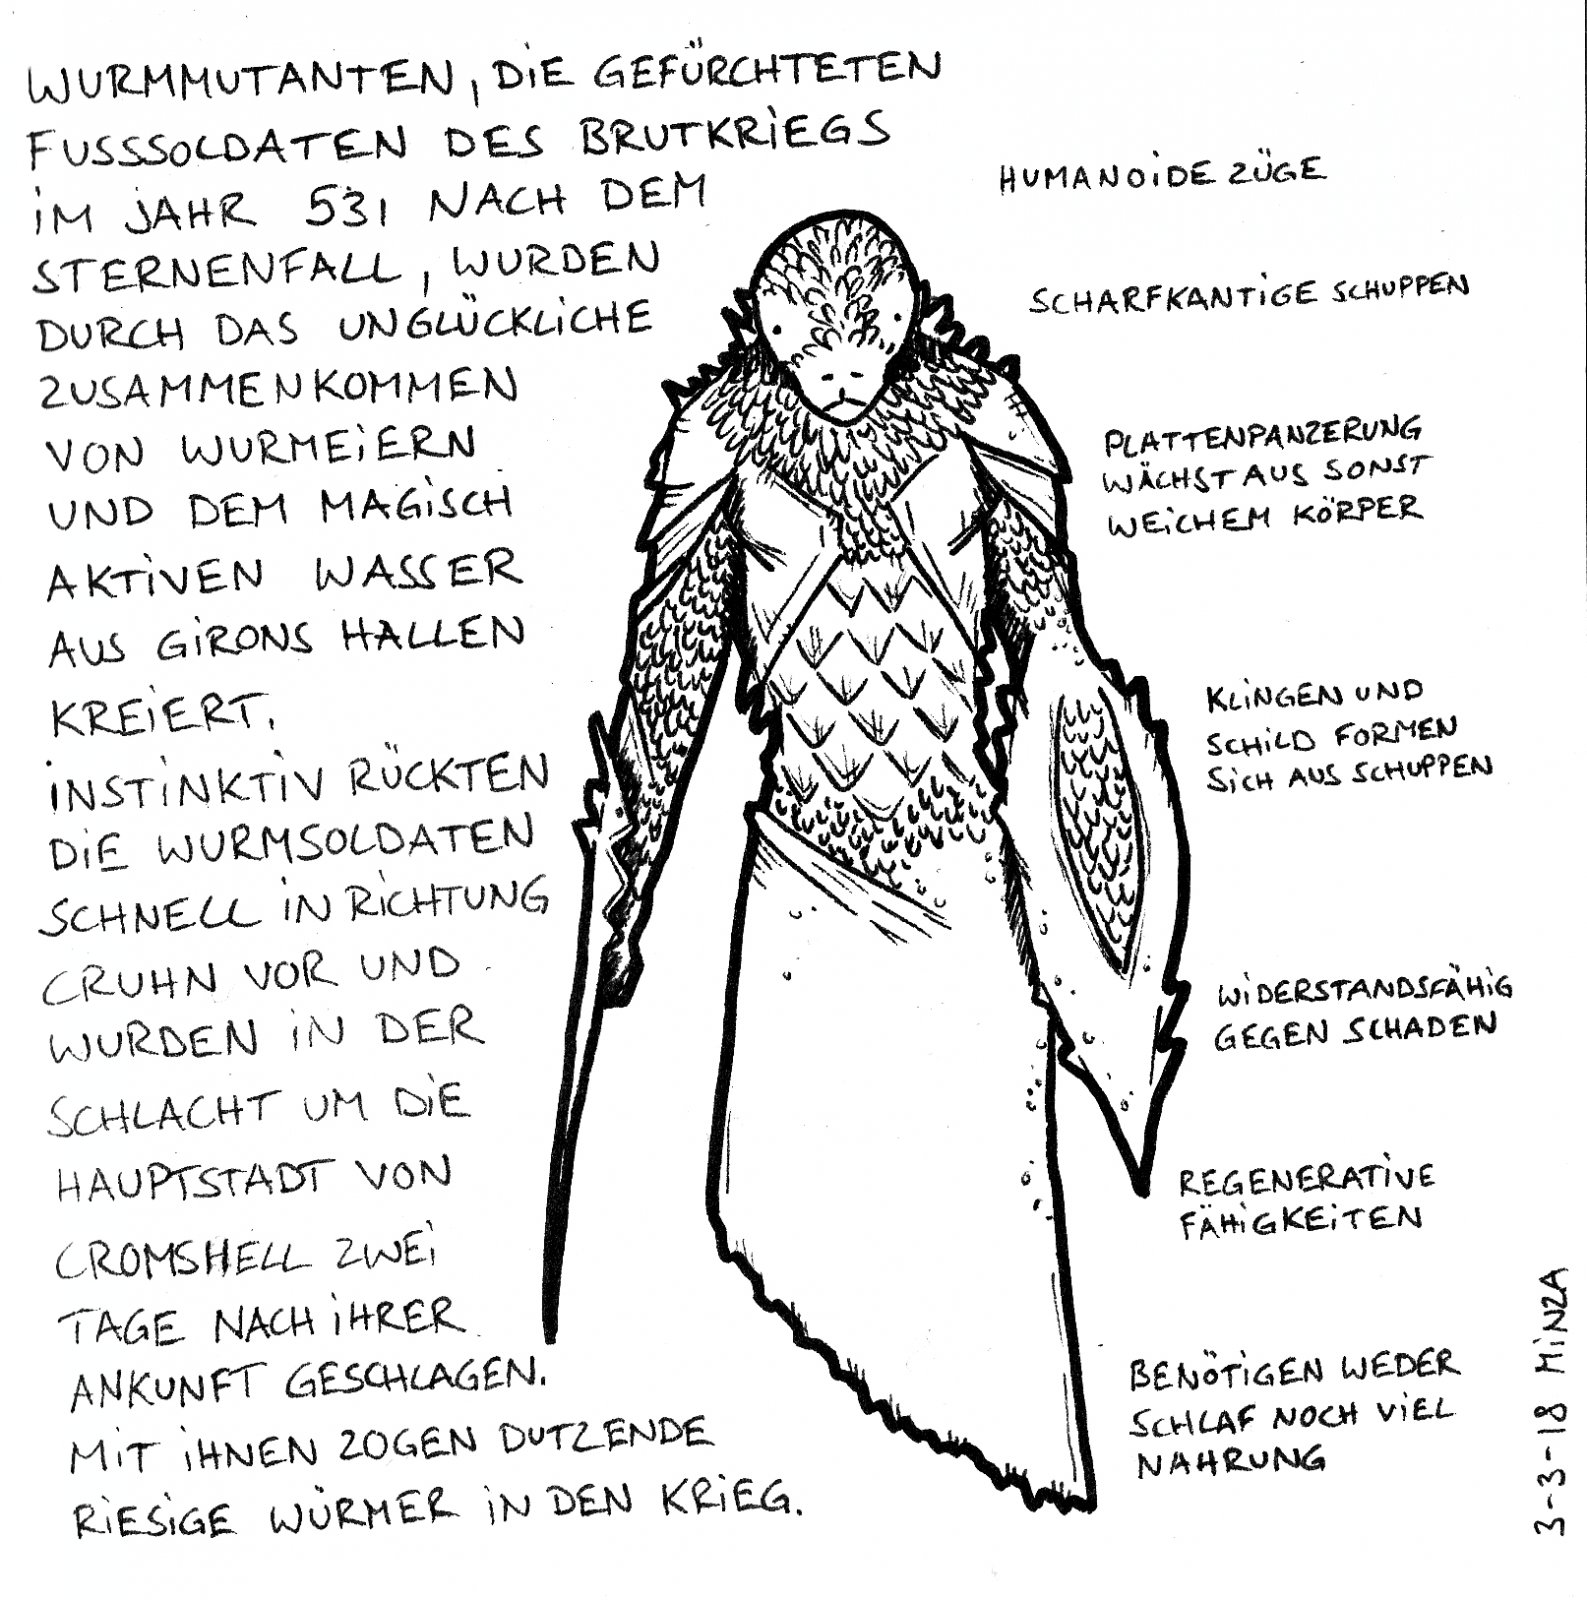 WURMMUTANTEN, DiE GEFÜRCHTETEN
FUSSSOLDATEN DES BRUTKRiEGS
iM JAHR 531 NACH DEM
STERNENFALL, WURDEN
DURCH DAS UNGLÜCKLiCHE
ZUSAMMENKOMMEN
VON WURMEiERN
UND DEM MAGiSCH
AKTiVEN WASSER
AUS GiRONS HALLEN
KREiERT.
iNSTiNKTiV RÜCKTEN
DiE WURMSOLDATEN
SCHNELL iN RiCHTUNG
CRUHN VOR UND
WURDEN iN DER
SCHLACHT UM DiE
HAUPTSTADT VON
CROMSHELL ZWEi
TAGE NACH iHRER
ANKUNFT GESCHLAGEN.
MiT iHNEN ZOGEN DUTZENDE
RiESiGE WÜRMER iN DEN KRiEG.
HUMANOiDE ZÜGE
SCHARFKANTiGE SCHUPPEN
PLATTENPANZERUNG
WÄCHST AUS SONST
WEiCHEM KÖRPER
KLiNGEN UND
SCHiLD FORMEN
SiCH AUS SCHUPPEN
WiDERSTANDSFÄHiG
GEGEN SCHADEN
REGENERATiVE
FÄHiGKEiTEN
BENÖTiGEN WEDER
SCHLAF NOCH ViEL
NAHRUNG
3-3-18 MiNZA